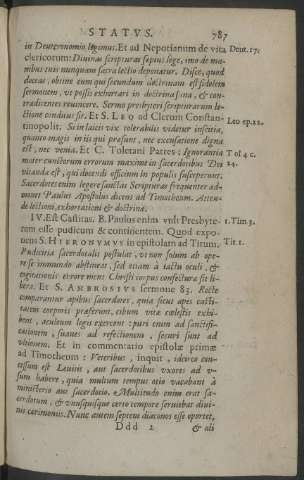 STATVS. 787
in Deuteronomio legimus. Et ad Nepotianum de vita Deut. 17.
clericorum: Diuinas scripturas sæpius lege, imo de ma-
nibus tuis nunquam sacra lectio deponatur. Disce, quod
doceas, obtine eum qui secundum doctrinam est fidelem
sermonem, vt possis exhortari in doctrina sana, & con-
tradicentes reuincere. Sermo presbyteri scripturarum le-
ctione conditus sit. Et S. LEO ad Clerum Constan- Leo ep. 22.
tinopolit. Si in laicis vix tolerabilis videtur inscitia,
quanto magis in iis qui præsunt, nec excusatione digna
est, nec venia. Et C. Toletani Patres: Ignorantia Tol 4 c.
mater cunctorum errorum maxime in sacerdotibus Dei 24.
vitanda est, qui docendi officium in populis susceperunt.
Sacerdotes enim legere sanctas Scripturas frequenter ad-
monet Paulus Apostolus dicens ad Timotheum. Atten-
de lectioni, exhortationi & doctrinæ.
IV. Est Castitas. B. Paulus enim vult Presbyte- 1. Tim 3.
rum esse pudicum & continentem. Quod expo-
nens S. HIERONYMVS in epistolam ad Titum. Tit 1.
Pudicitia sacerdotalis postulat, vt non solum ab ope-
re se immundo abstineat, sed etiam à iactu oculi, &
cogitationis errore mens Christi corpus confectura sit li-
bera. Et S. AMBROSIVS sermone 83. Recte
comparantur apibus sacerdotes, quia sicut apes casti-
tatem corporis præferunt, cibum vitæ cælestis exhi-
bent, aculeum legis exercent: puri enim ad sanctifi-
cationem, suaues ad refectionem, securi sunt ad
vltionem. Et in commentario epistolæ primæ
ad Timotheum: Veteribus, inquit, idcirco con-
cessum est Leuitis, aut sacerdotibus vxores ad v-
sum habere, quia multum tempus otio vacabant à
ministerio aut sacerdotio. Multitudo enim erat sa-
cerdotum, & vnusquisque certo tempore seruiebat diui-
nis cærimoniis. Nunc autem septem diaconos esse oportet,
Ddd 2 & ali